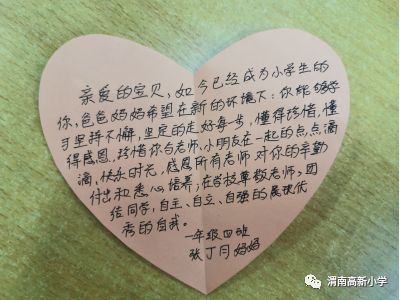 亲爱的宝贝，如今已经成为小学生的
你，爸爸妈妈希望在新的环境下：你能够学
习坚持不懈，坚定的走好每一步，懂得珍惜，懂
得感恩，珍惜你与老师、小朋友在一起的点点滴
滴、快乐时光，感恩所有老师对你的辛勤
付出和悉心培养；在学校尊敬老师、团
结同学，自主、自立、自强的展现优
秀的自我。
一年级四班
张丁月妈妈
渭南高新小学